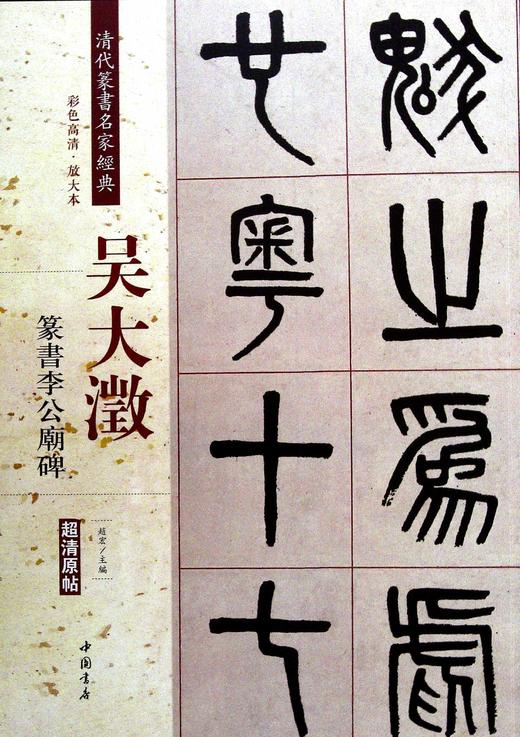 清代篆書名家經典
彩色高清·放大本
吴大澂
篆書李公廟碑
趙宏/主編
超清原帖
中国書店
魃之為虐
粤十七